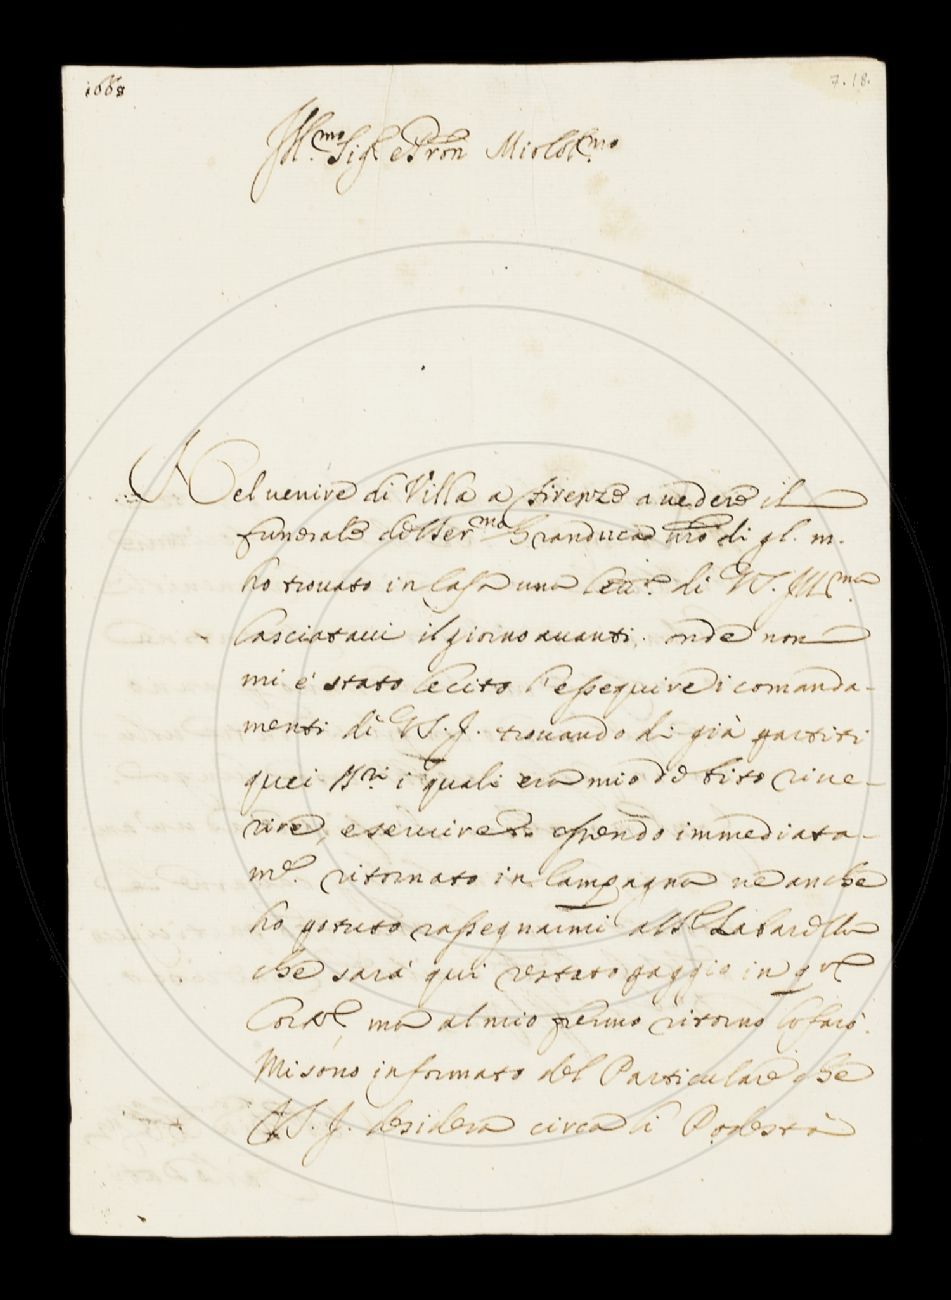 1668
7. 18.
Ill.mo Sig.r e Pron Mio Col.mo
Nel venire di Villa a Firenze a vedere il
funerale del Ser.mo Granduca nro di gl. m.
ho trovato in Casa una lett.a di V.S. Ill.ma
lasciatavi il giorno avanti. onde non
mi è stato lecito l'esseguire i comanda-
menti di V.S.I. trovando di già partiti
quei SS.ri i quali era mio debito rive-
rire, e servire. essendo immediata-
m.e ritornato in Campagna ne anche
ho potuto rassegnarmi al S.r Zabarella
che sarà qui restato paggio in
Corte, ma al mio primo ritorno lo farò.
Mi sono informato del Particulare che
V.S.I. desidera circa li Podestà